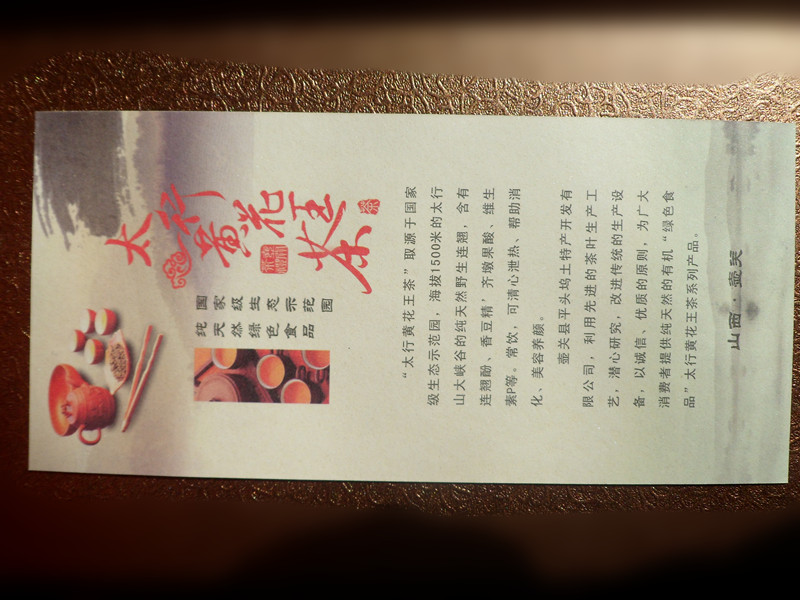 太行
黄花
王茶
国家级生态示范园
纯天然绿色食品
“太行黄花王茶”取源于国家
级生态示范园,海拔1600米的太行
山大峡谷的纯天然野生连翘,含有
连翘酚、香豆精’齐墩果酸、维生
素P等。常饮,可清心泄热、帮助消
化、美容养颜。
壶关县平头坞土特产开发有
限公司,利用先进的茶叶生产工
艺,潜心研究,改进传统的生产设
备,以诚信、优质的原则,为广大
消费者提供纯天然的有机“绿色食
品”太行黄花王茶系列产品。
山西·壶关